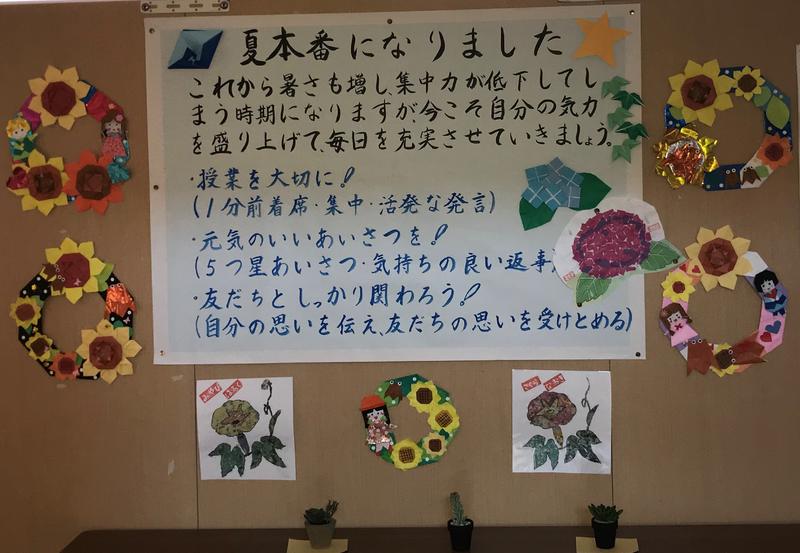 夏本番になりました
これから暑さも増し、集中力が低下してし
まう時期になりますが、今こそ自分の気力
を盛り上げて、毎日を充実させていきましょう。
・授業を大切に!
(1分前着席・集中・活発な発言)
・元気のいいあいさつを!
(5つ星あいさつ・気持ちの良い返事)
・友だちとしっかり関わろう!
(自分の思いを伝え、友だちの思いを受けとめる)